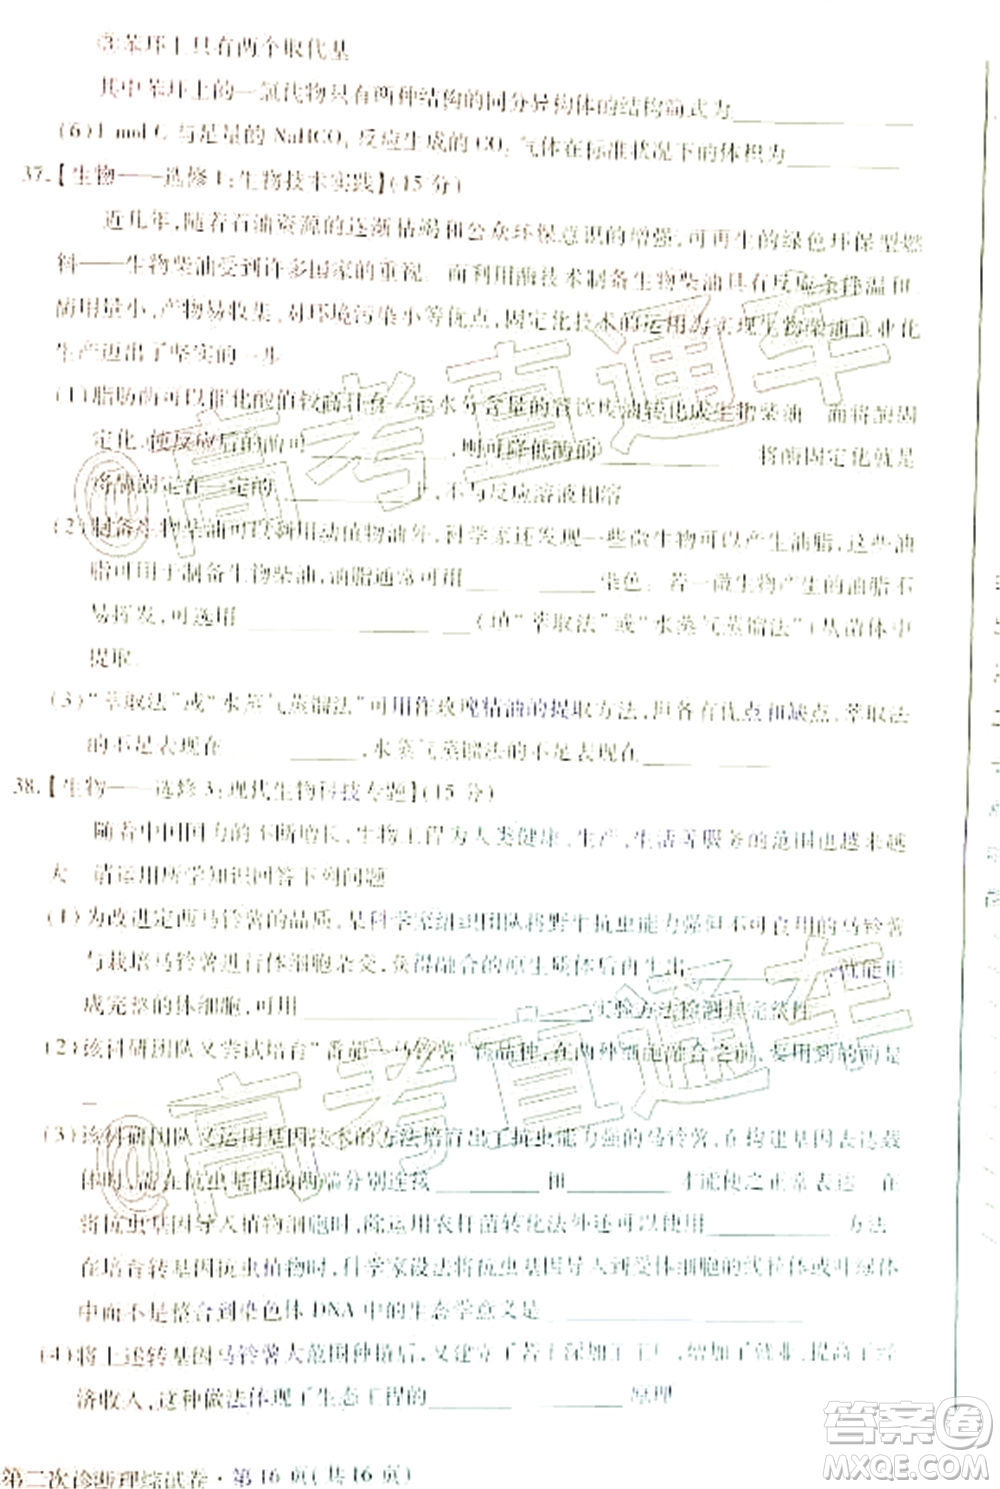 ③苯环上只有两个取代基
其中苯环上的一氯代物只有两种结构的同分异构体的结构简式为
(6)1 mol C 与足量的 NaHCO₃ 反应生成的 CO₂ 气体在标准状况下的体积为
37.【生物——选修1:生物技术实践】(15分)
近几年,随着石油资源的逐渐枯竭和公众环保意识的增强,可再生的绿色环保型燃
料——生物柴油受到许多国家的重视。而利用酶技术制备生物柴油具有反应条件温和、
酶用量小,产物易收集、对环境污染小等优点,固定化技术的运用为实现生物柴油工业化
生产迈出了坚实的一步
(1)脂肪酶可以催化酸值较高且有一定水分含量的餐饮废油转化成生物柴油 而将酶固
定化,使反应后的酶可 ,则可降低酶的 将酶固定化就是
将酶固定在一定的 上,不与反应溶液相溶
(2)制备生物柴油可以利用动植物油外,科学家发现一些微生物可以产生油脂,此类油
脂可用于制备生物柴油,油脂通常可用 染色;若一微生物产生的油脂不
易挥发,可选用 (填“萃取法”或“水蒸气蒸馏法”)从菌体中
提取.
(3)“萃取法”或“水蒸气蒸馏法”可用作玫瑰精油的提取方法,但各有优点和缺点,萃取法
的不足表现在 ,水蒸气蒸馏法不足表现在
38.【生物——选修3:现代生物科技专题】(15分)
随着中国国力的不断增长,生物工程为人类健康,生产,生活等服务的范围也越来越
大 请运用所学知识回答下列问题
(1)为改进定西马铃薯的品质,某科学家组织团队将野生抗虫能力强但不可食用的马铃薯
与栽培马铃薯进行体细胞杂交,获得融合的原生质体后再生出 ,就能形
成完整的体细胞,可用 实验方法检测其完整性
(2)该科研团队又尝试培育“番茄—马铃薯”新品种,在两种细胞融合之前,要用到的是
(3)该科研团队又运用基因技术的方法培育出了抗虫能力强的马铃薯,在构建基因表达载
体时,需在抗虫基因的两端分别连接 和 才能使之正常表达 在
将抗虫基因导入植物细胞时,除运用农杆菌转化法外还可以使用 方法
在培育转基因抗虫植物时,科学家设法将抗虫基因导入植物体细胞的线粒体或叶绿体
中而不是整合到染色体DNA中的生态学意义是
(4)将上述转基因马铃薯大范围种植后,又建立了若干深加工工厂,增加了就业,提高了经
济收入,这种做法体现了生态工程的 原理
第二次诊断理综试卷·第16页(共16页)
高考直通车
高考直通车
答案卷